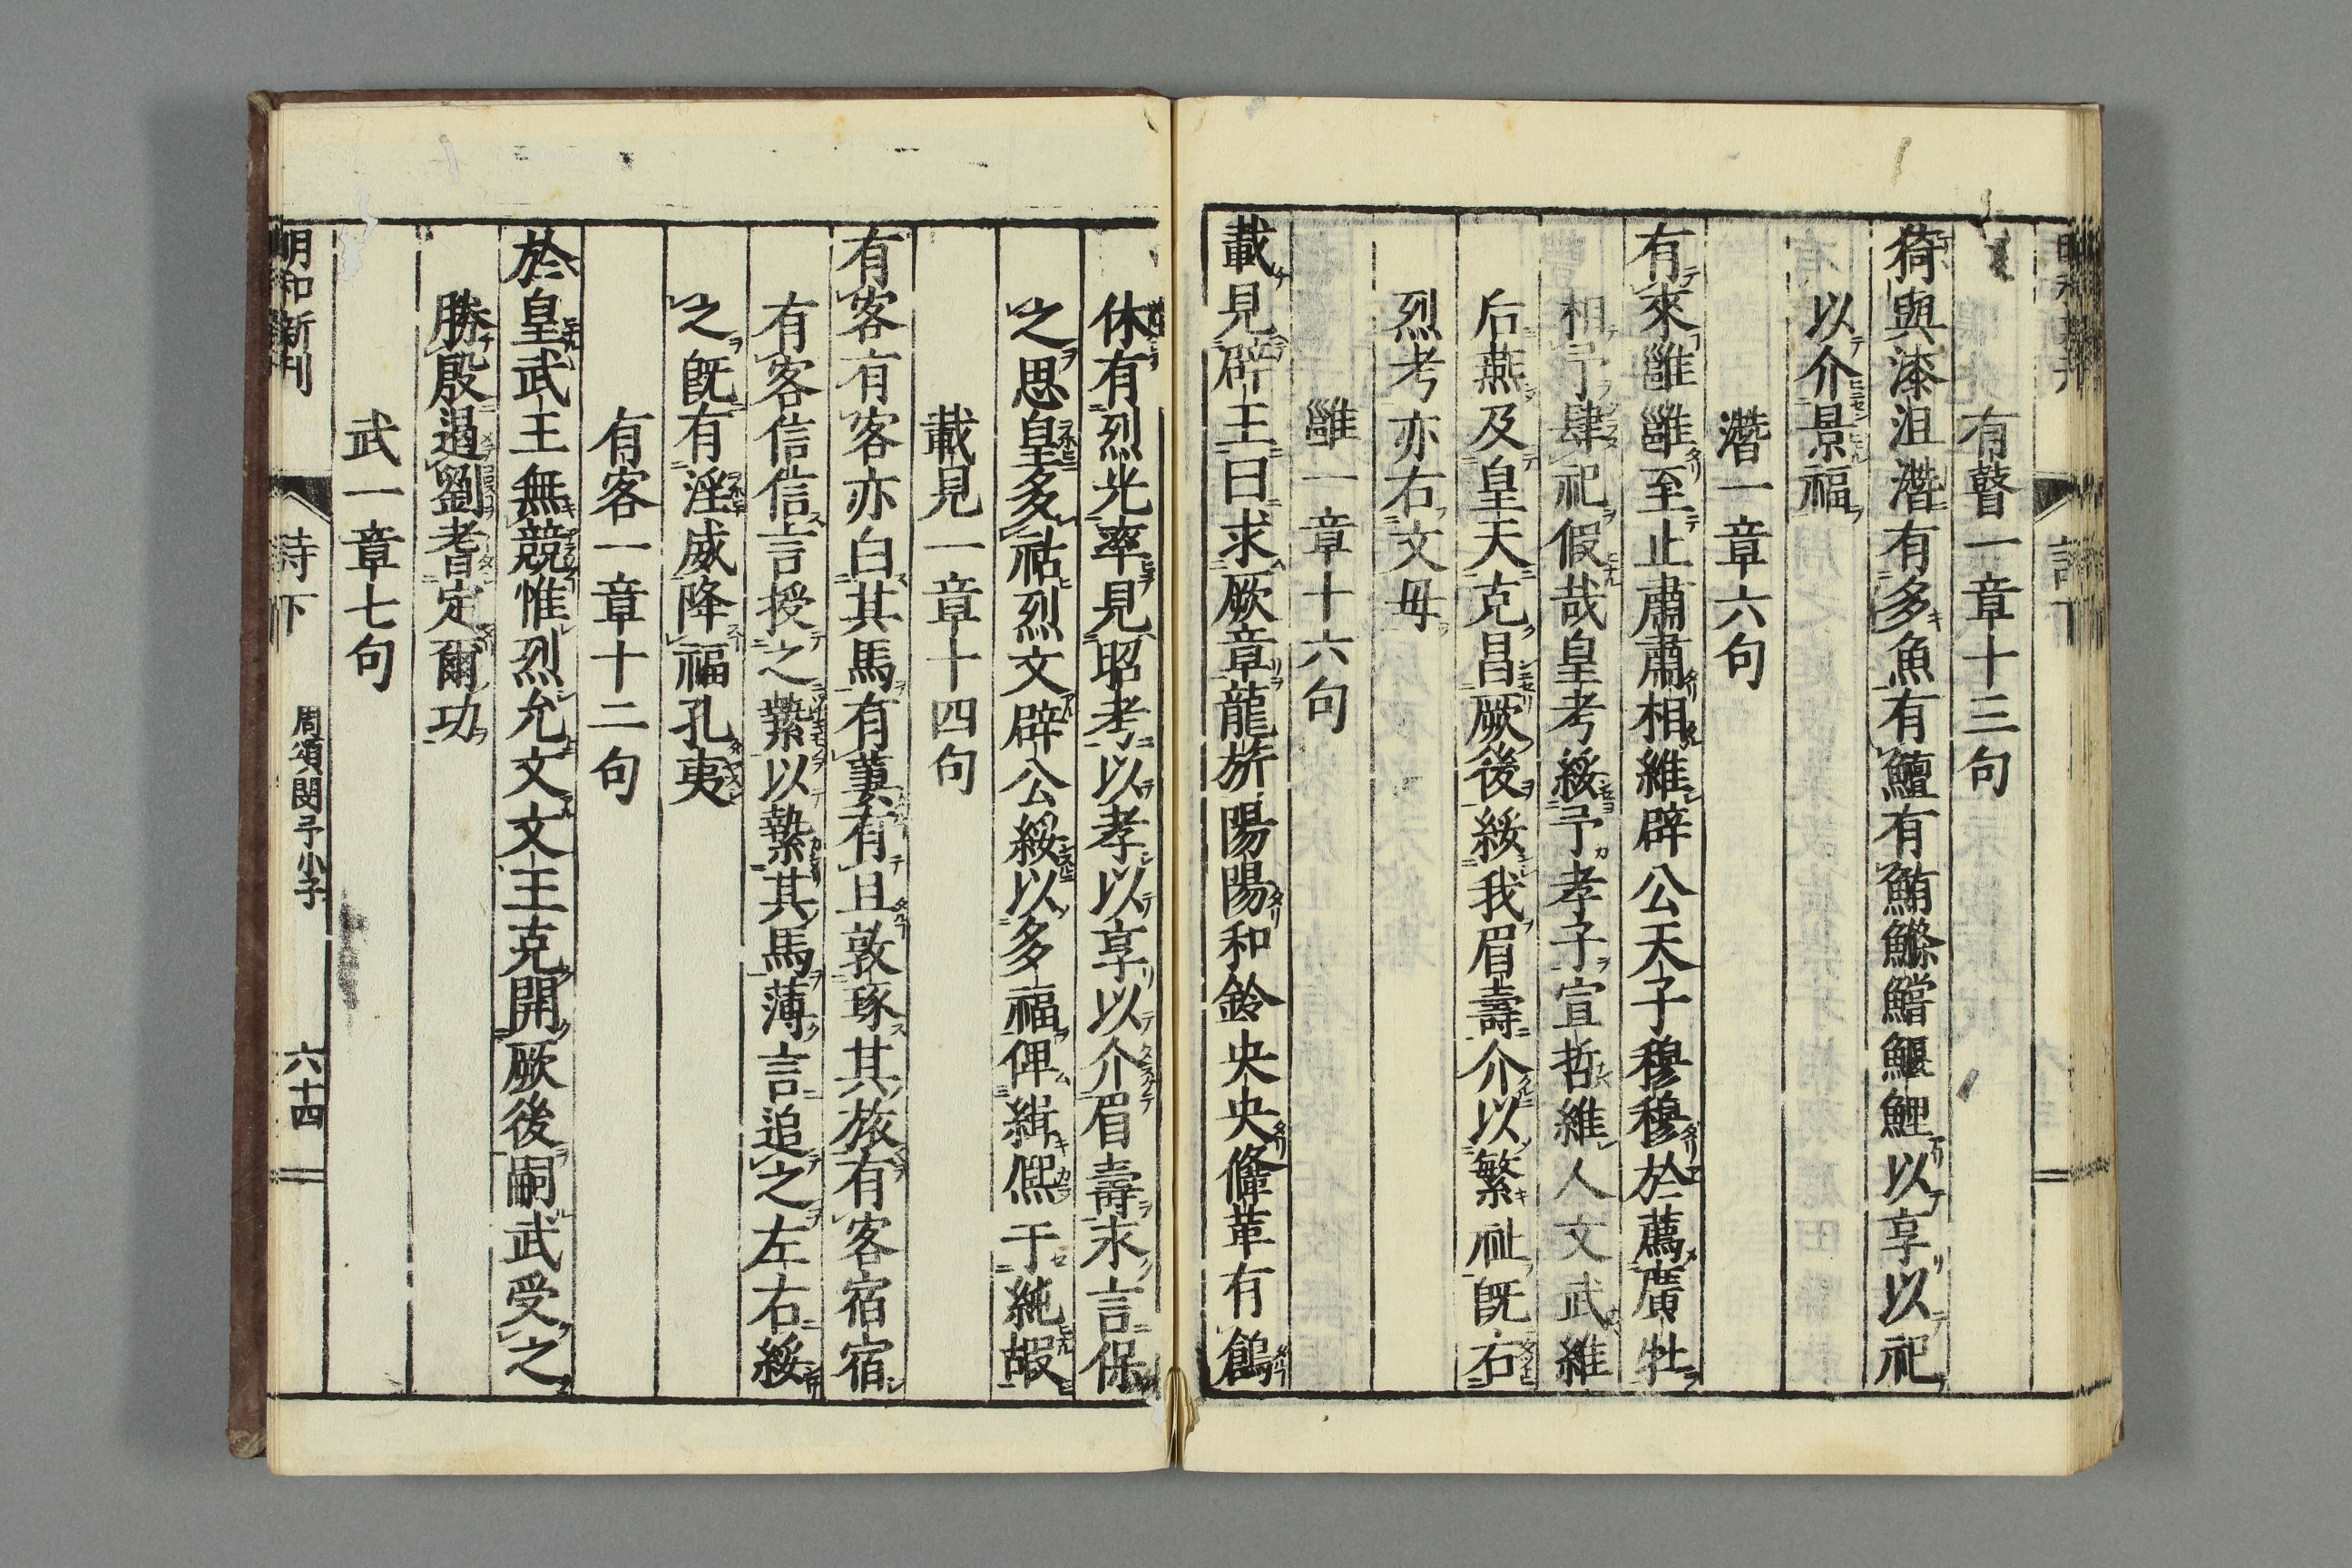 有瞽一章十三句
猗與漆沮潛有多魚有鱣有鮪鰷鱨鰋鯉以享以祀
以介景福
潛一章六句
有來雝雝至止肅肅相維辟公天子穆穆於薦廣牡
相予肆祀假哉皇考綏予孝子宣哲維人文武維
后燕及皇天克昌厥後綏我眉壽介以繁祉既右
烈考亦右文母
雝一章十六句
載見辟王曰求厥章龍旂陽陽和鈴央央鞗革有鶬
休有烈光率見昭考以孝以享以介眉壽永言保
之思皇多祜烈文辟公綏以多福俾緝熙于純嘏
載見一章十四句
有客有客亦白其馬有萋有且敦琢其旅有客宿宿
有客信信言授之縶以縶其馬薄言追之左右綏
之既有淫威降福孔夷
有客一章十二句
於皇武王無競惟烈允文文王克開厥後嗣武受之
勝殷遏劉耆定爾功
武一章七句
明和新刊 詩下 周頌閔予小子 六十四